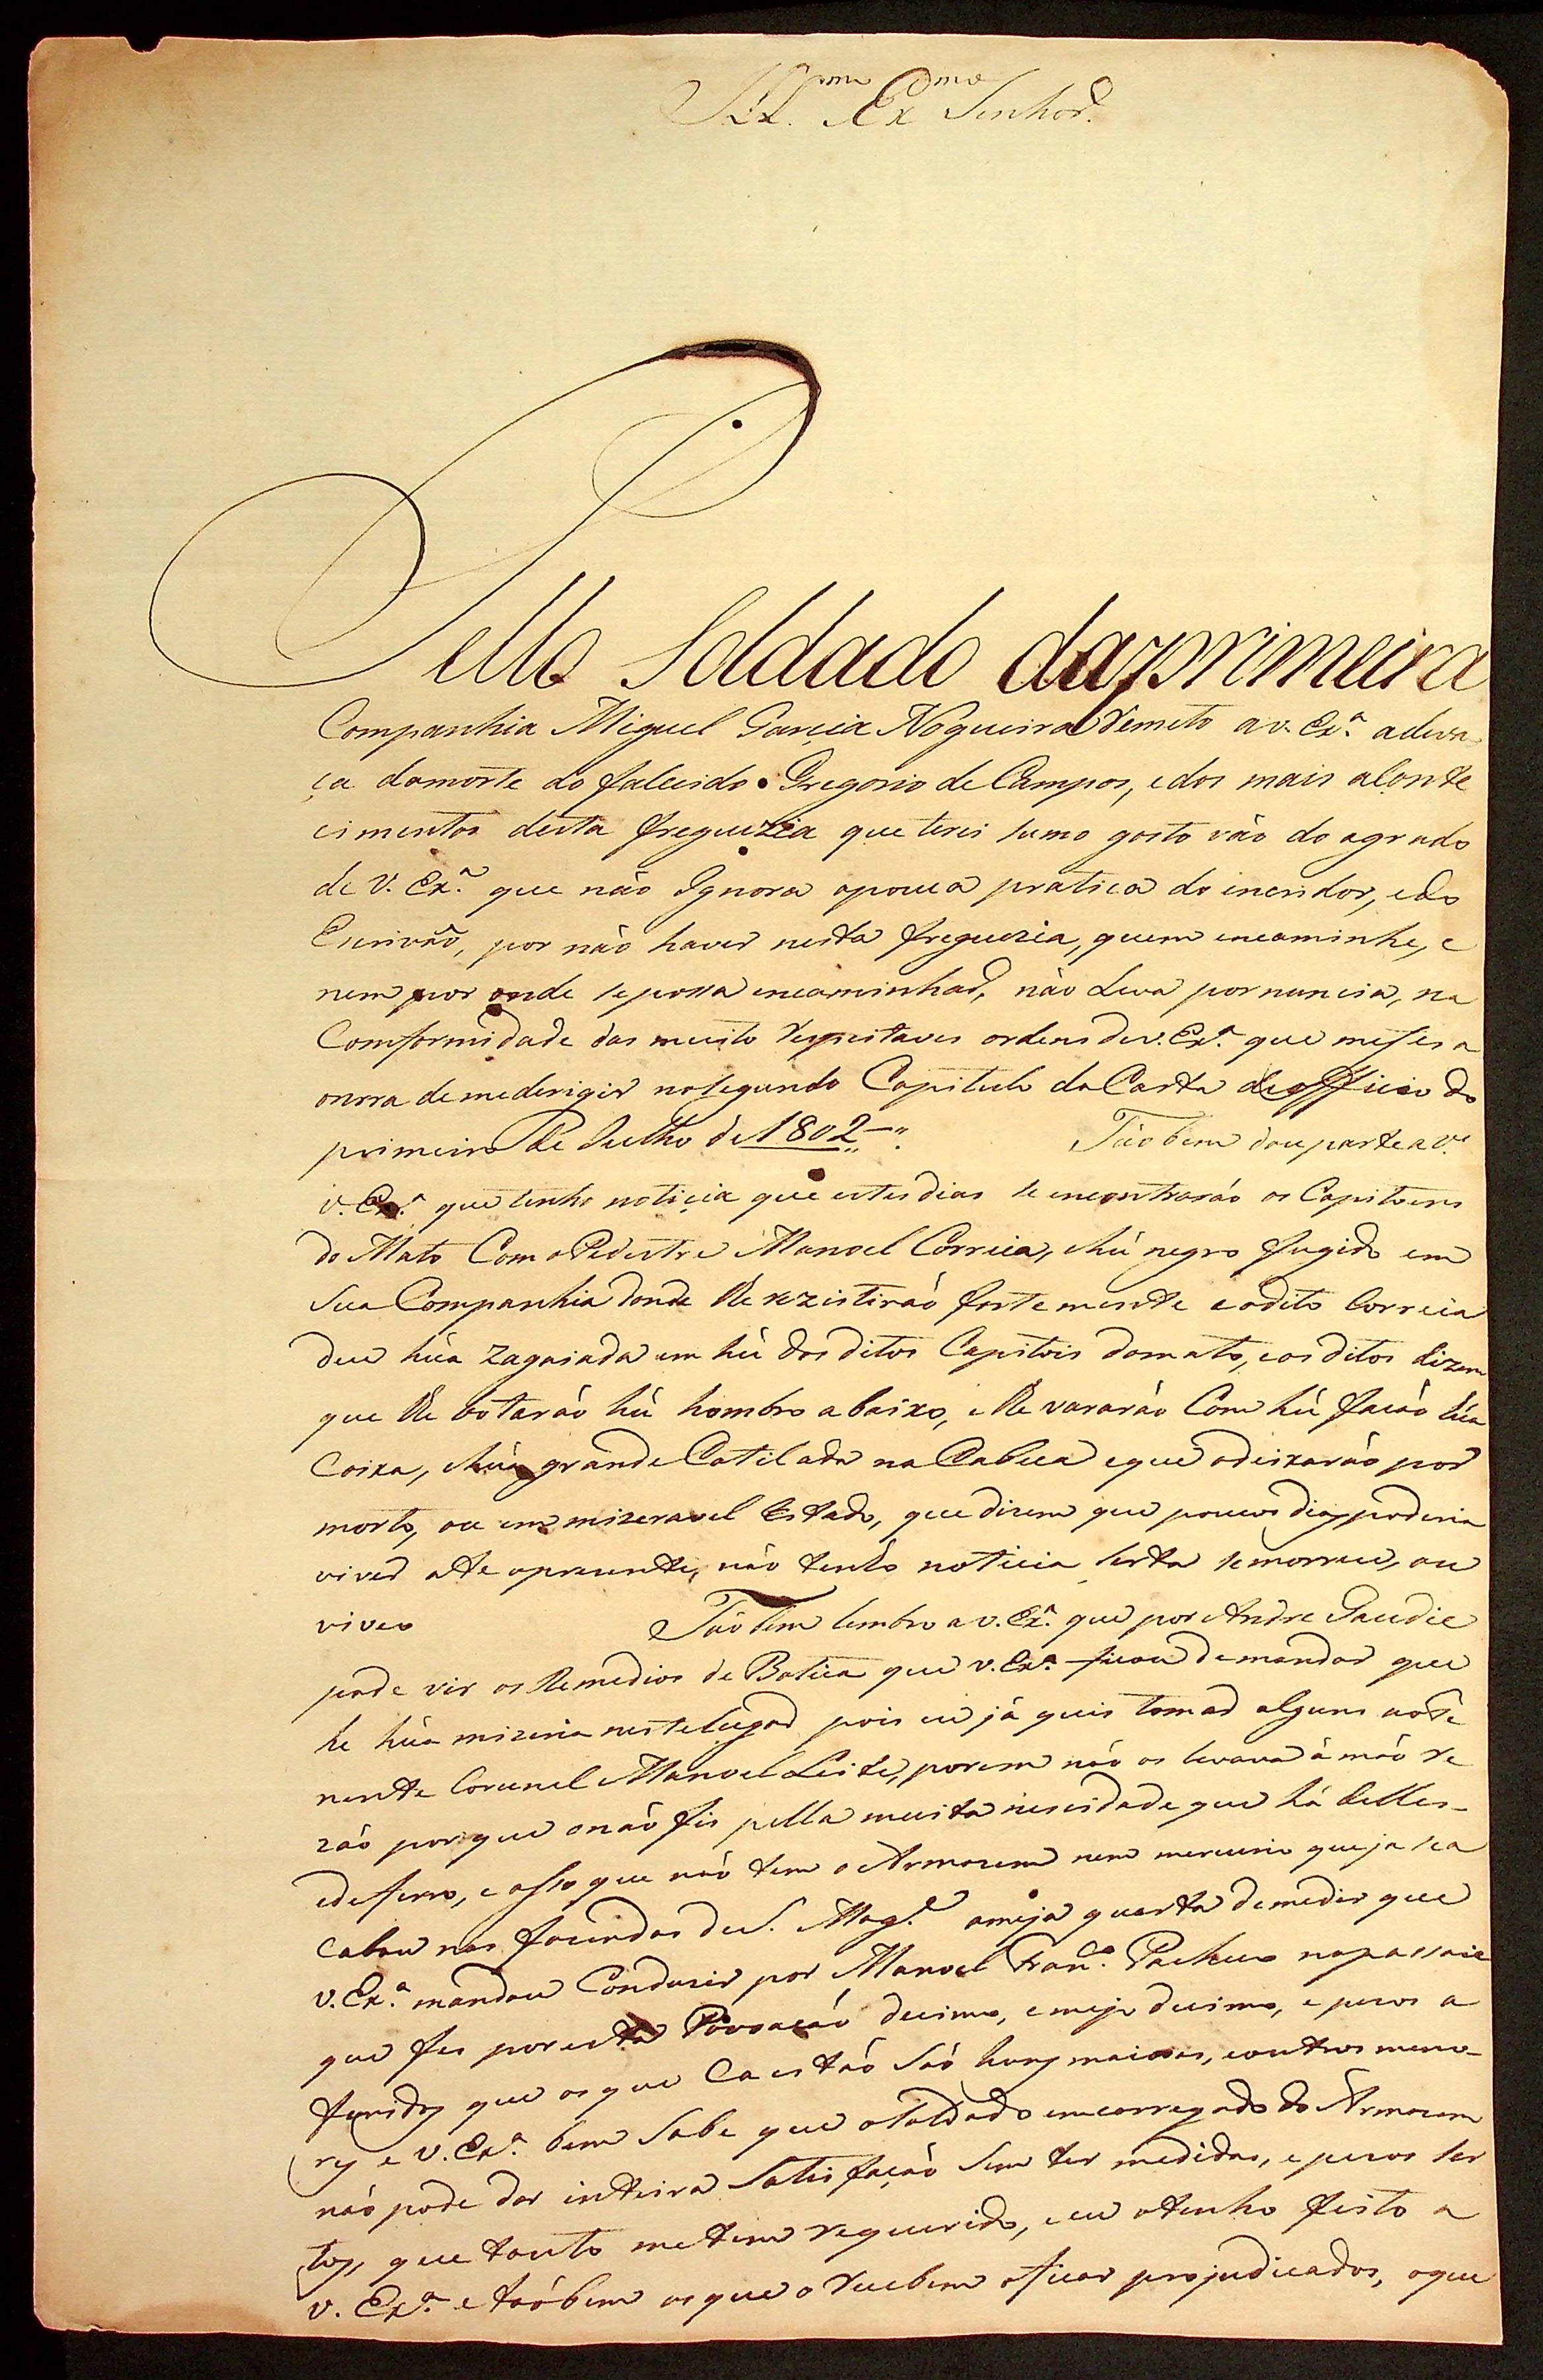 Ill.mo Ex.mo Senhor.
Pello Soldado da primeira
Companhia Miguel Garcia Nogueira Remeto a v. Ex.ª adeva
ça damorte do falecido Gregorio de Campos, edos mais aConte
cimentos desta freguezia que terei sumo gosto vão do agrado
de V. Ex.ª que não Ignora apouca pratica do inquiridor, edo
Escrivão, por não haver nesta freguezia, quem encaminhe, e
nem por onde seposa encaminhar, não Leva pornuncia, na
Comformidade das muito Respeitaves ordens dev. Ex.ª que mefes a
onrra demederigir nosegundo Capitulo da Carta de officio do
primeiro de Julho de 1802
Tãobem dou parte a V.
v. Ex.ª que tenho noticia que estes dias se encontrarão os Capitoens
do Mato Com o Pedestre Manoel Correia, ehú negro fugido em
Sua Companhia donde lhe rezistirão fortemente eodito Correia
deu húa Zagaiada em hú dos ditos Capitois domato, eos ditos dizem
que lhe botarão hú hombro abaixo, elhe vararão Com hú facão húa
Coixa, ehúa grande Cotilada na Cabeca eque odeixarão por
morto, ou em mizeravel Estado, que dizem que poucos dias poderia
viver ate oprezente, não tenho noticia serta semorreu, ou
vive
Tãobem lembro a v. Ex.ª que por Andre Gaudie
pode vir os Remedios de Botica que v. Ex.ª ficou demandar que
he húa mizeria nestelugar pois eu já quis tomar alguns aoTe
nente Coronel Manoel Leite, porem não os levava à mão re
zão porque onão fis pella muita necsidade que há delles
edeferro, e asso que não tem o Armazem nem mercurio queja sea
Cabou nas fazendas de S. Mag.e ameja quarta demedir que
v. Ex.ª mandou Conduzir por Manoel Fran.co Pacheco napassaie
que fes poresta Povoacão decimo, emejo decimo, epezos a
feridos que osque Ca estão São huns maiores, eoutros meno
res e v. Ex.ª bem Sabe que oSoldado emcarregado do Armazem
não pode dar inteira Satisfação Sem ter medidas, epezos ser
tos, que tanto metem requerido, eeu otenho feito a
v. Ex.ª etãobem os que o recebem aficar projudicados, oque